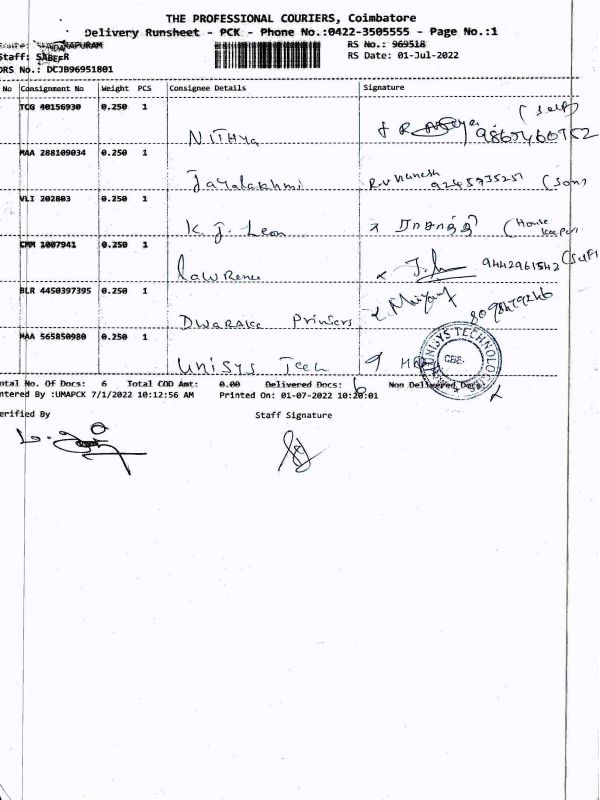 THE PROFESSIONAL COURIERS, Coimbatore
Delivery Runsheet - PCK - Phone No.:0422-3505555 - Page No.:1
RS No.: 969518
Staff: SABEER
RS Date: 01-Jul-2022
DRS No.: DCJB96951801
No Consignment No Weight PCS Consignee Details Signature
TCG 40156930 0.250 1 NITHYA (Self)
MAA 288109034 0.250 1 Jayalakhmi 9245735251 (Son)
VLI 202803 0.250 1 K J. Leon ராசாத்தி (House keeper)
CMM 1007941 0.250 1 Lawrence 9442961542 (Self)
BLR 4450397395 0.250 1 DWARAKA Printers
MAA 565850980 0.250 1 UNISYS Tech UNISYS TECHNOLOGIES CBE.
otal No. Of Docs: 6 Total COD Amt: 0.00 Delivered Docs: 6 Non Delivered Docs:
ntered By :UMAPCK 7/1/2022 10:12:56 AM Printed On: 01-07-2022 10:20:01
erified By Staff Signature